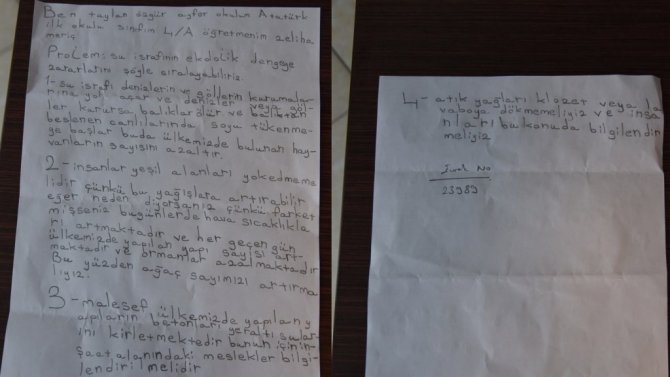 Ben taylan özgür ayfor okulun Atatürk
ilk okulu sınfım 4/A öğretmenim zeliha
meriç
ProLem: su israfının ekdolik dengeye
zararlarını şöyle sıralayabiliriz.
1- su israfı denizlerin ve göllerin kurumalar
rına yol açar ve denizler veya göl-
ler kurursa balıklar ölür ve balıktan
beslenen canlılarında soyu tükenme-
ye başlar buda ülkemizde bulunan hay-
vanların sayısını azaltır.
2- insanlar yeşil alanları yokedmeme
lidir çünkü bu yağışlara artırabilir
eğer neden diyorsanız çünkü farket
mişseniz bugünlerde hava sıcaklıkla
rı artmaktadır ve her geçen gün
ülkemizde yapılan yapı sayısı art-
maktadır ve ormanlar azalmaktadır
Bu yüzden ağaç sayımızı artırma
lıyız.
3- malesef ülkemizde yapılan y
apıların betonları yeraltı sular-
ını kirletmektedir bunun için in-
şaat alanındaki meslekler bilgi-
lendirilmelidir
4- atık yağları klozet veya la
vaboya dökmemeliyiz ve insa
nları bu konuda bilgilendir
meliyiz
No
23983